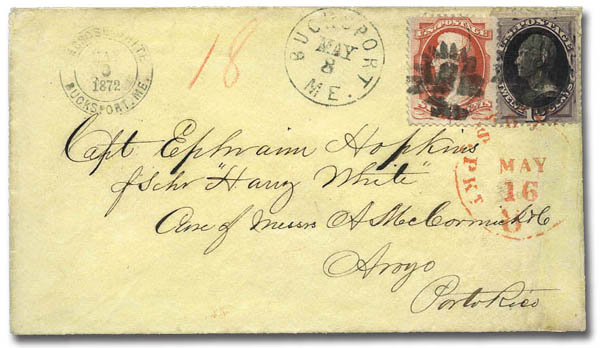 1872
BUCKSPORT, ME.
18
BUCKSPORT
MAY
8
ME.
U.S. POSTAGE
U.S. POSTAGE
MAY
16
Capt Ephraim Hopkins
of Schr "Harry White"
Care of Messrs A McCormick & Co
Aroyo
Porto Rico